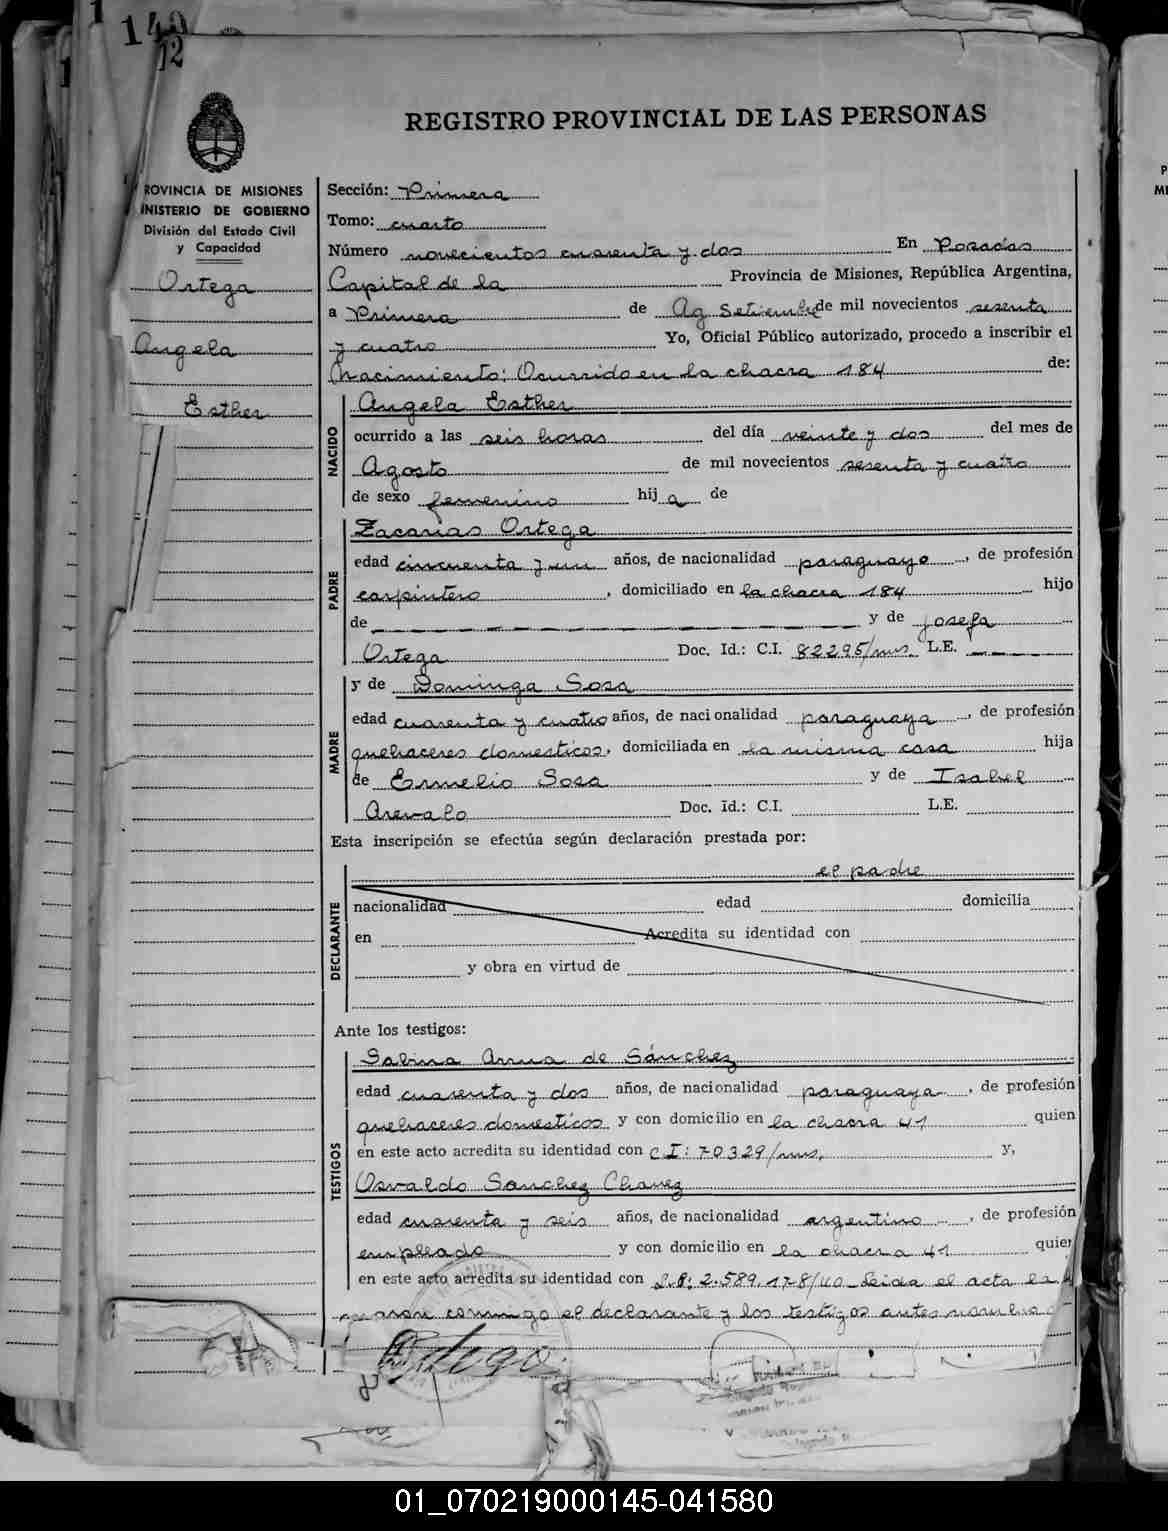 140
12
REGISTRO PROVINCIAL DE LAS PERSONAS
ROVINCIA DE MISIONES
INISTERIO DE GOBIERNO
División del Estado Civil
y Capacidad
Ortega
Angela
Esther
Sección: Primera
Tomo: cuarto
Número novecientos cuarenta y dos En Posadas
Capital de la Provincia de Misiones, República Argentina,
a Primera de Ag Setiembre de mil novecientos sesenta
y cuatro Yo, Oficial Público autorizado, procedo a inscribir el
Nacimiento: Ocurrido en la chacra 184 de:
NACIDO
Angela Esther
ocurrido a las seis horas del día veinte y dos del mes de
Agosto de mil novecientos sesenta y cuatro
de sexo femenino hija de
PADRE
Zacarias Ortega
edad cincuenta y un años, de nacionalidad paraguayo, de profesión
carpintero, domiciliado en la chacra 184 hijo
de y de Josefa
Ortega Doc. Id.: C.I. 82295/mns. L.E.
MADRE
y de Dominga Sosa
edad cuarenta y cuatro años, de nacionalidad paraguaya, de profesión
quehaceres domesticos, domiciliada en la misma casa hija
de Ermelio Sosa y de Isabel
Arevalo Doc. Id.: C.I. L.E.
Esta inscripción se efectúa según declaración prestada por:
DECLARANTE
el padre
nacionalidad edad domicilia
en Acredita su identidad con
y obra en virtud de
Ante los testigos:
TESTIGOS
Sabina Arrua de Sánchez
edad cuarenta y dos años, de nacionalidad paraguaya, de profesión
quehaceres domesticos y con domicilio en la chacra 41 quien
en este acto acredita su identidad con C I: 70329/mns. y,
Osvaldo Sanchez Chavez
edad cuarenta y seis años, de nacionalidad argentino, de profesión
empleado y con domicilio en la chacra 41 quien
en este acto acredita su identidad con 2.589.178/40 Leida el acta la
conmigo el declarante y los testigos antes
Ortega
01_070219000145-041580